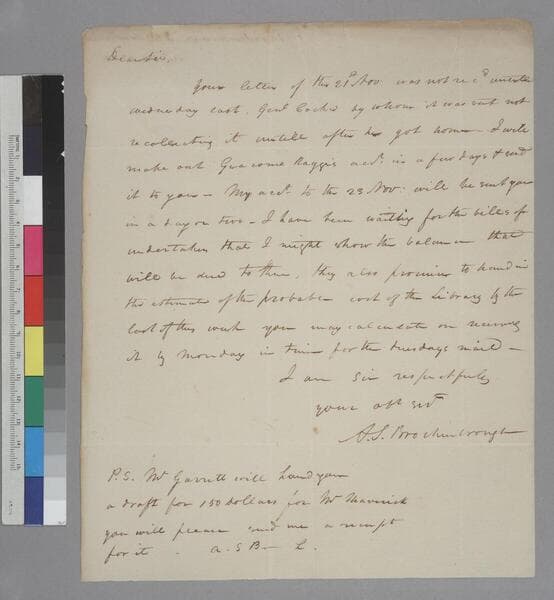 Dear Sir,
Your letter of the 21st Nov was not recd untill
wednesday last. Genl Cocke by whom it was sent not
recollecting it untill after he got home - I will
make out Giacomo Raggis acct in a few days & send
it to you - My acct to the 23 Nov: will be sent you
in a day or two - I have been waiting for the bills of
undertakers that I might show the balance that
will be due to them, they also promise to hand in
the estimate of the probable cost of the Library by the
last of this week you may calculate on receiving
it by Monday in time for the tuesdays mail -
I am Sir respectfully
your obt Svt
A. S. Brockenbrough
P.S. Mr Garrett will hand you
a draft for 150 dollars for Mr Maverick
you will please send me a receipt
for it. A. S B